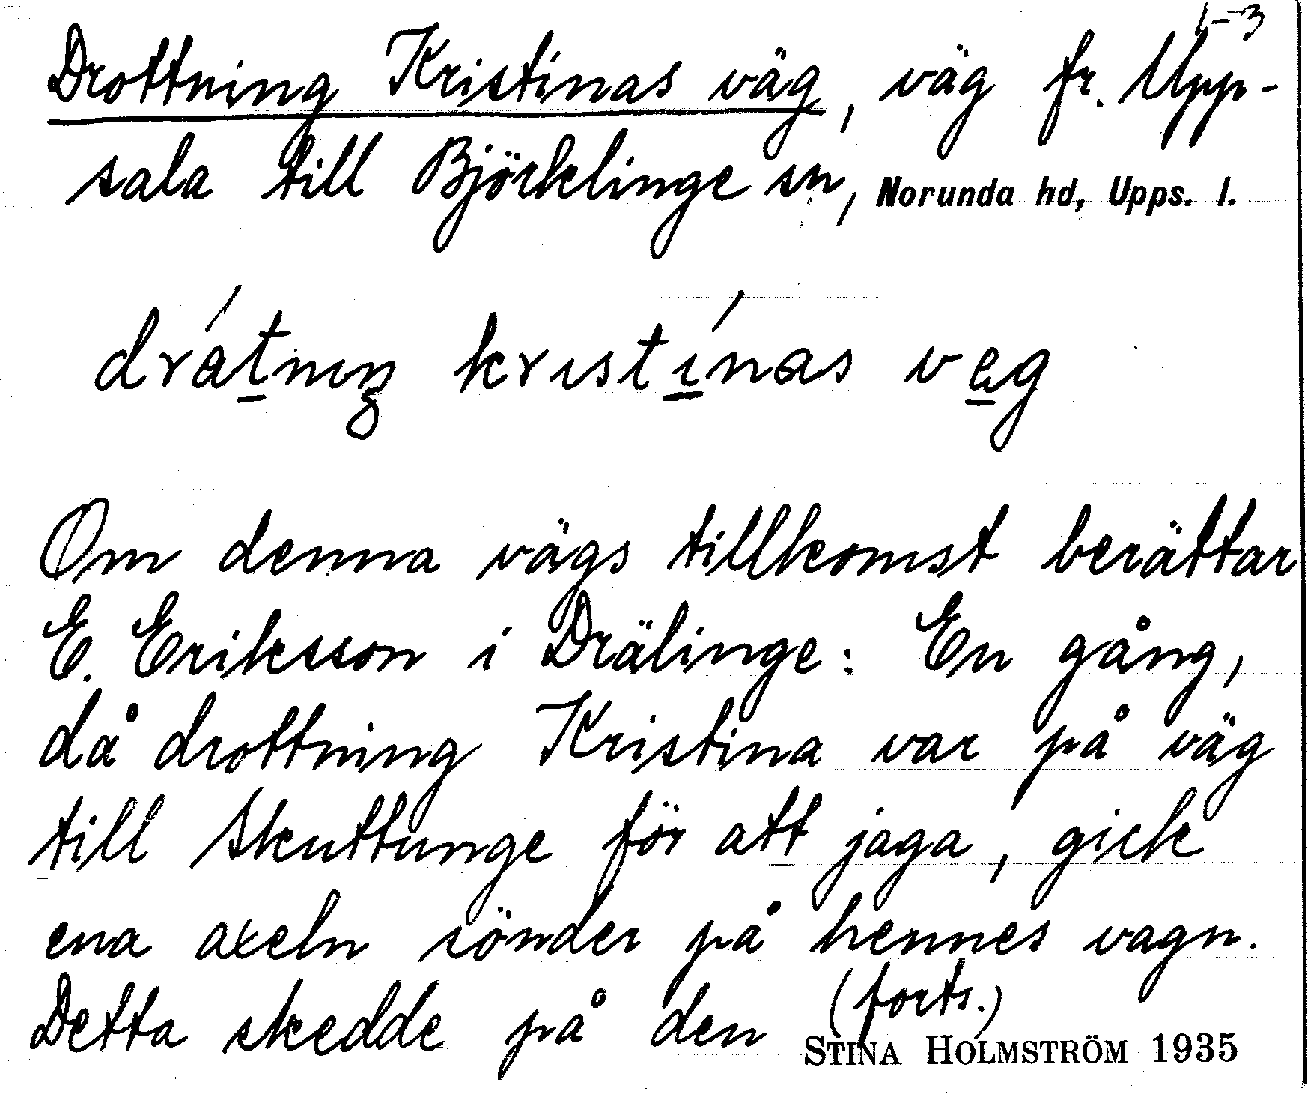 1-3
Drottning Kristinas väg, väg fr. Upp-
sala till Björklinge sn, Norunda hd, Upps. l.
drátnıŋ krıstı́nas veg
Om denna vägs tillkomst berättar
E. Eriksson i Drälinge: En gång,
då drottning Kristina var på väg
till Skuttunge för att jaga, gick
ena axeln sönder på hennes vagn.
Detta skedde på den (forts.)
STINA HOLMSTRÖM 1935